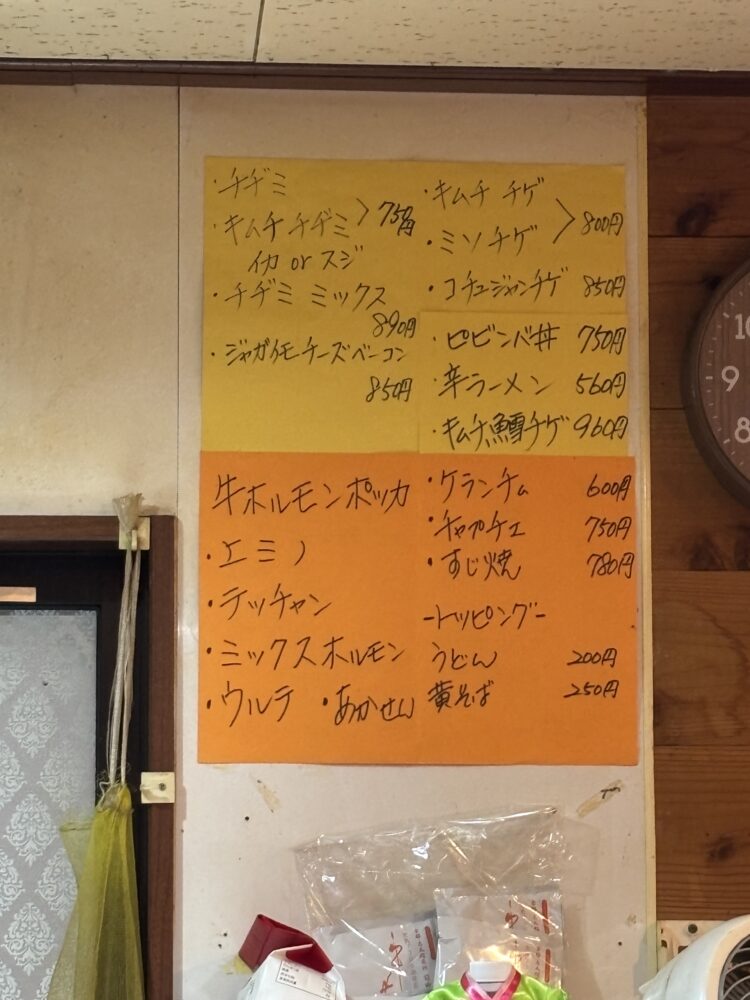 ・チヂミ
・キムチチヂミ 〉750円
イカ or スジ
・チヂミ ミックス
890円
・ジャガイモチーズベーコン
850円
・キムチ チゲ
・ミソチゲ 〉800円
・コチュジャンチゲ 850円
・ピビンバ丼 750円
・辛ラーメン 560円
・キムチ鱈チゲ 960円
牛ホルモンポッカ
・エミノ
・テッチャン
・ミックスホルモン
・ウルテ ・あかせん
・ケランチム 600円
・チャプチェ 750円
・すじ焼 780円
-トッピング-
うどん 200円
黄そば 250円
10
9
8